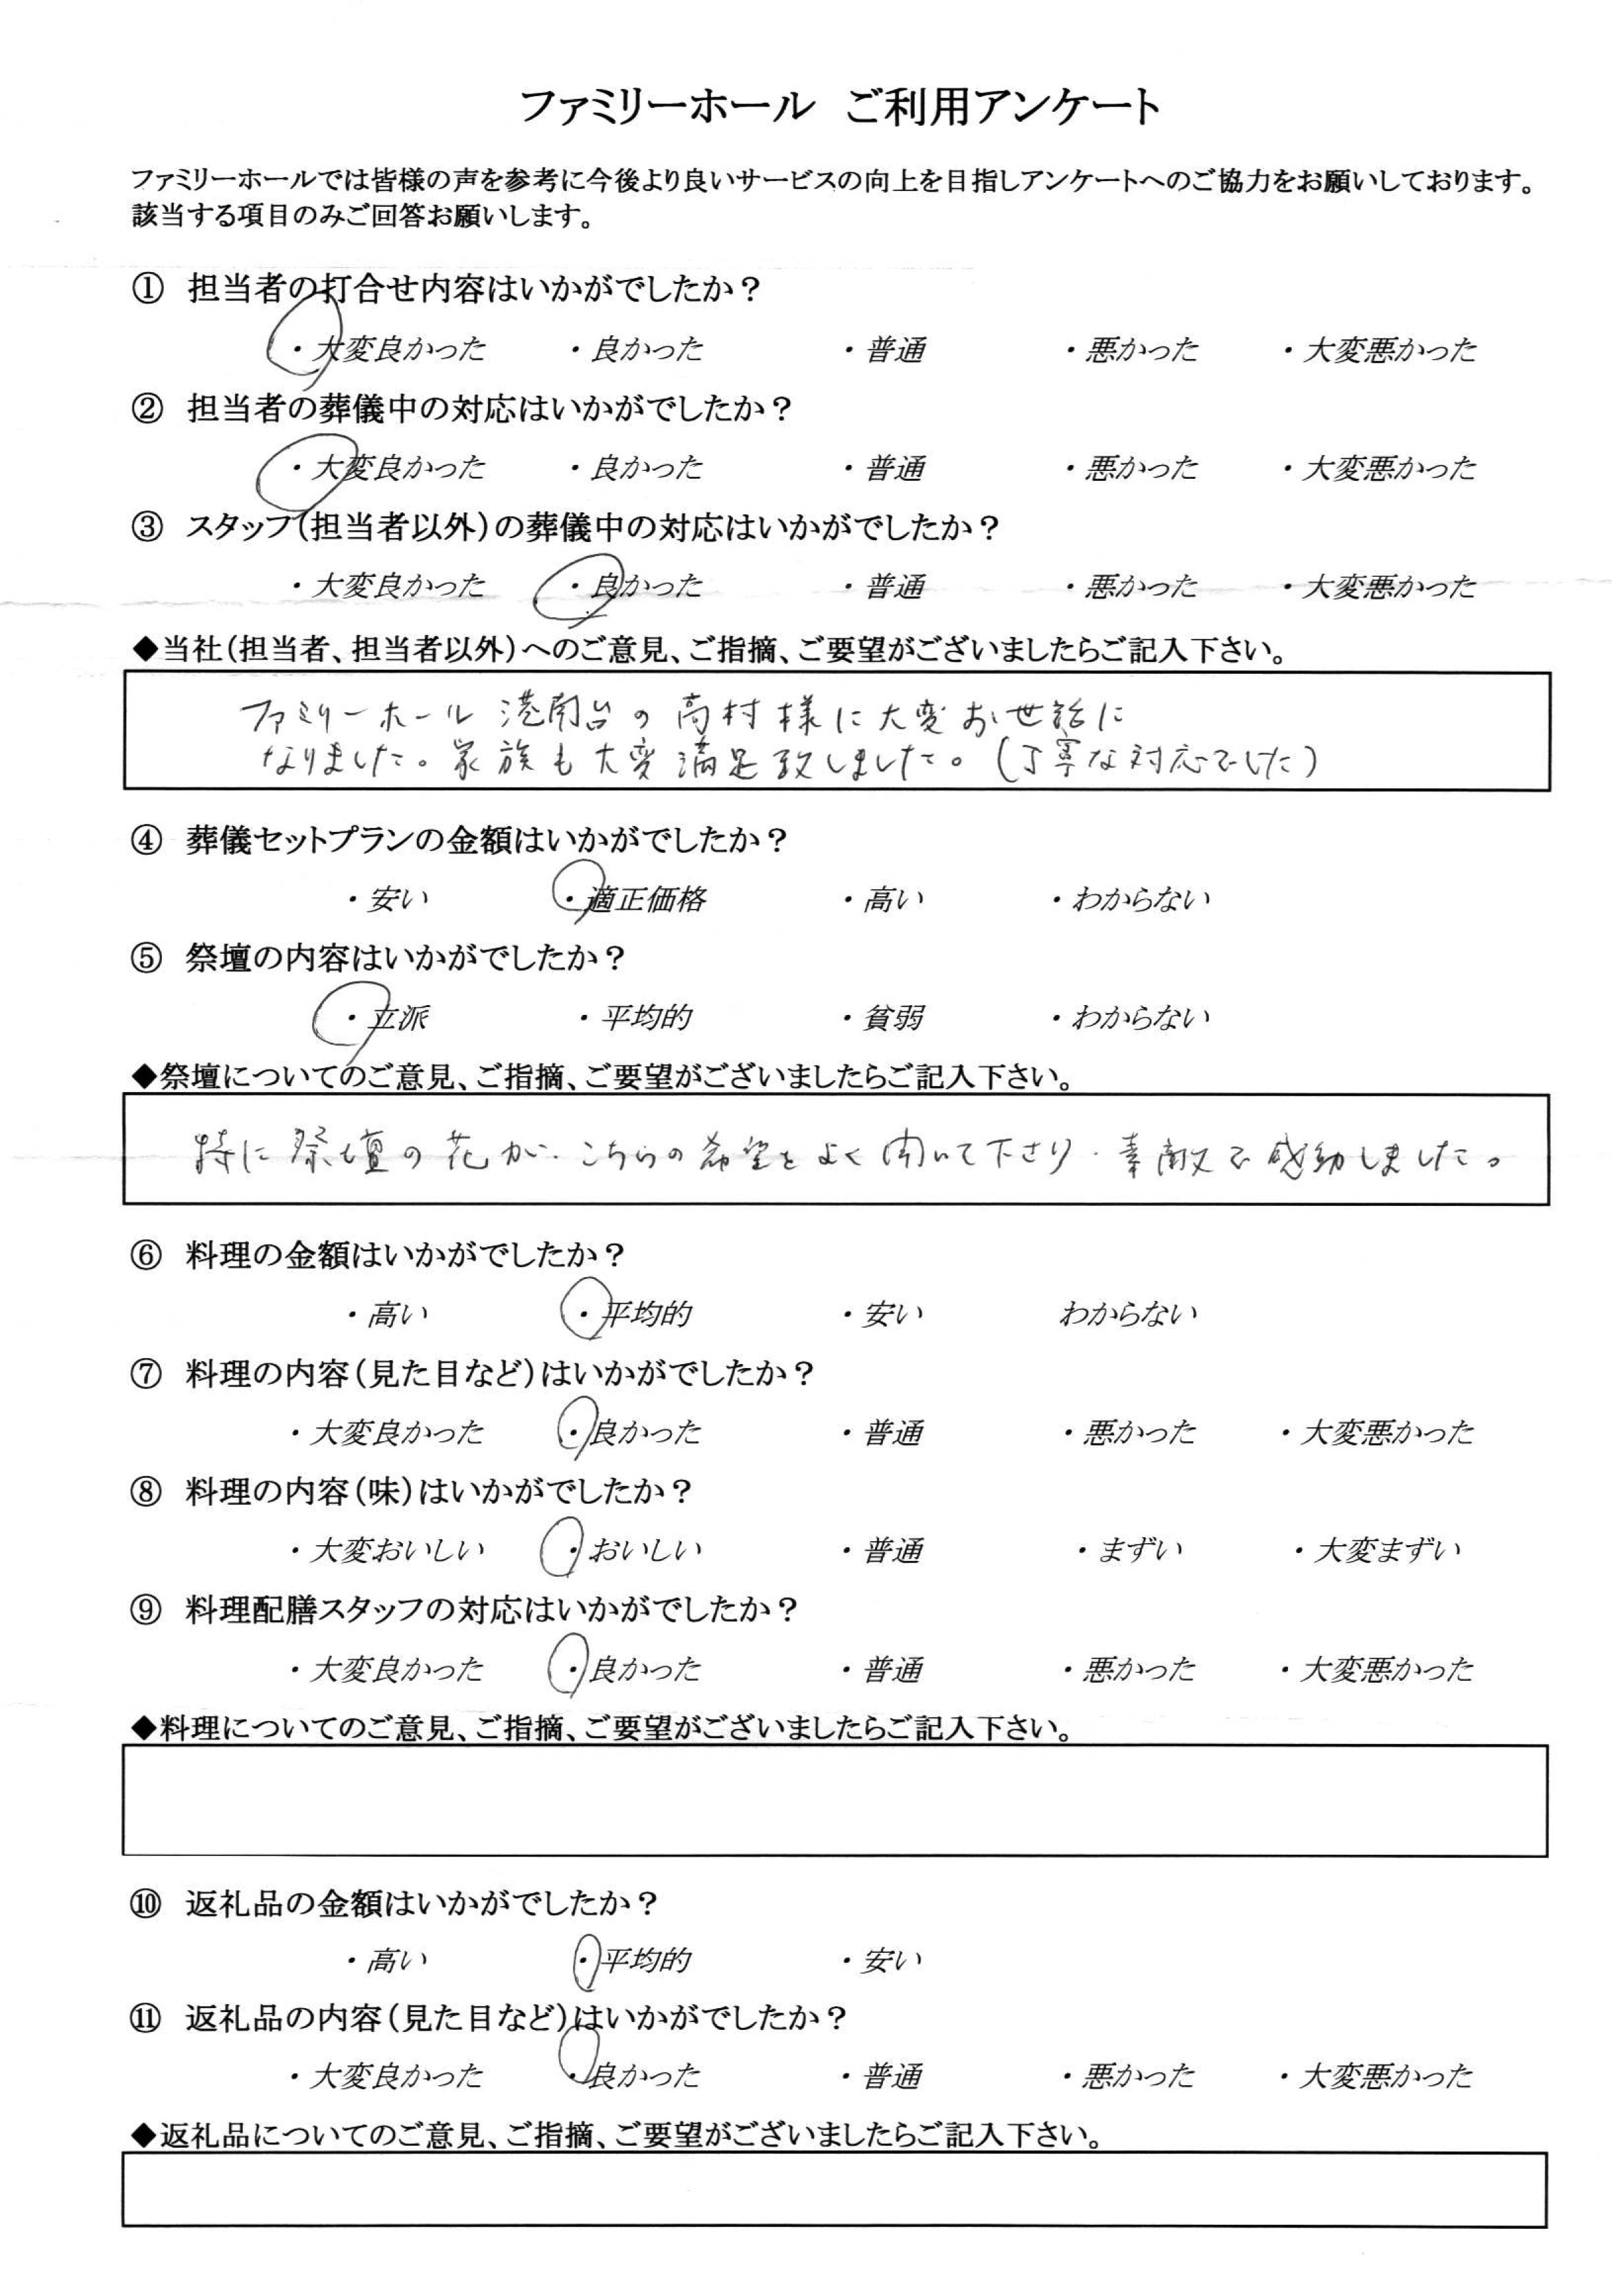 ファミリーホール　ご利用アンケート
ファミリーホールでは皆様の声を参考に今後より良いサービスの向上を目指しアンケートへのご協力をお願いしております。
該当する項目のみご回答お願いします。
① 担当者の打合せ内容はいかがでしたか？
・大変良かった ・良かった ・普通 ・悪かった ・大変悪かった
② 担当者の葬儀中の対応はいかがでしたか？
・大変良かった ・良かった ・普通 ・悪かった ・大変悪かった
③ スタッフ（担当者以外）の葬儀中の対応はいかがでしたか？
・大変良かった ・良かった ・普通 ・悪かった ・大変悪かった
◆当社（担当者、担当者以外）へのご意見、ご指摘、ご要望がございましたらご記入下さい。
ファミリーホール港南台の高村様に大変お世話に
なりました。家族も大変満足致しました。（丁寧な対応でした）
④ 葬儀セットプランの金額はいかがでしたか？
・安い ・適正価格 ・高い ・わからない
⑤ 祭壇の内容はいかがでしたか？
・立派 ・平均的 ・貧弱 ・わからない
◆祭壇についてのご意見、ご指摘、ご要望がございましたらご記入下さい。
特に祭壇の花が、こちらの希望をよく聞いて下さり、素敵で感動しました。
⑥ 料理の金額はいかがでしたか？
・高い ・平均的 ・安い わからない
⑦ 料理の内容（見た目など）はいかがでしたか？
・大変良かった ・良かった ・普通 ・悪かった ・大変悪かった
⑧ 料理の内容（味）はいかがでしたか？
・大変おいしい ・おいしい ・普通 ・まずい ・大変まずい
⑨ 料理配膳スタッフの対応はいかがでしたか？
・大変良かった ・良かった ・普通 ・悪かった ・大変悪かった
◆料理についてのご意見、ご指摘、ご要望がございましたらご記入下さい。
⑩ 返礼品の金額はいかがでしたか？
・高い ・平均的 ・安い
⑪ 返礼品の内容（見た目など）はいかがでしたか？
・大変良かった ・良かった ・普通 ・悪かった ・大変悪かった
◆返礼品についてのご意見、ご指摘、ご要望がございましたらご記入下さい。